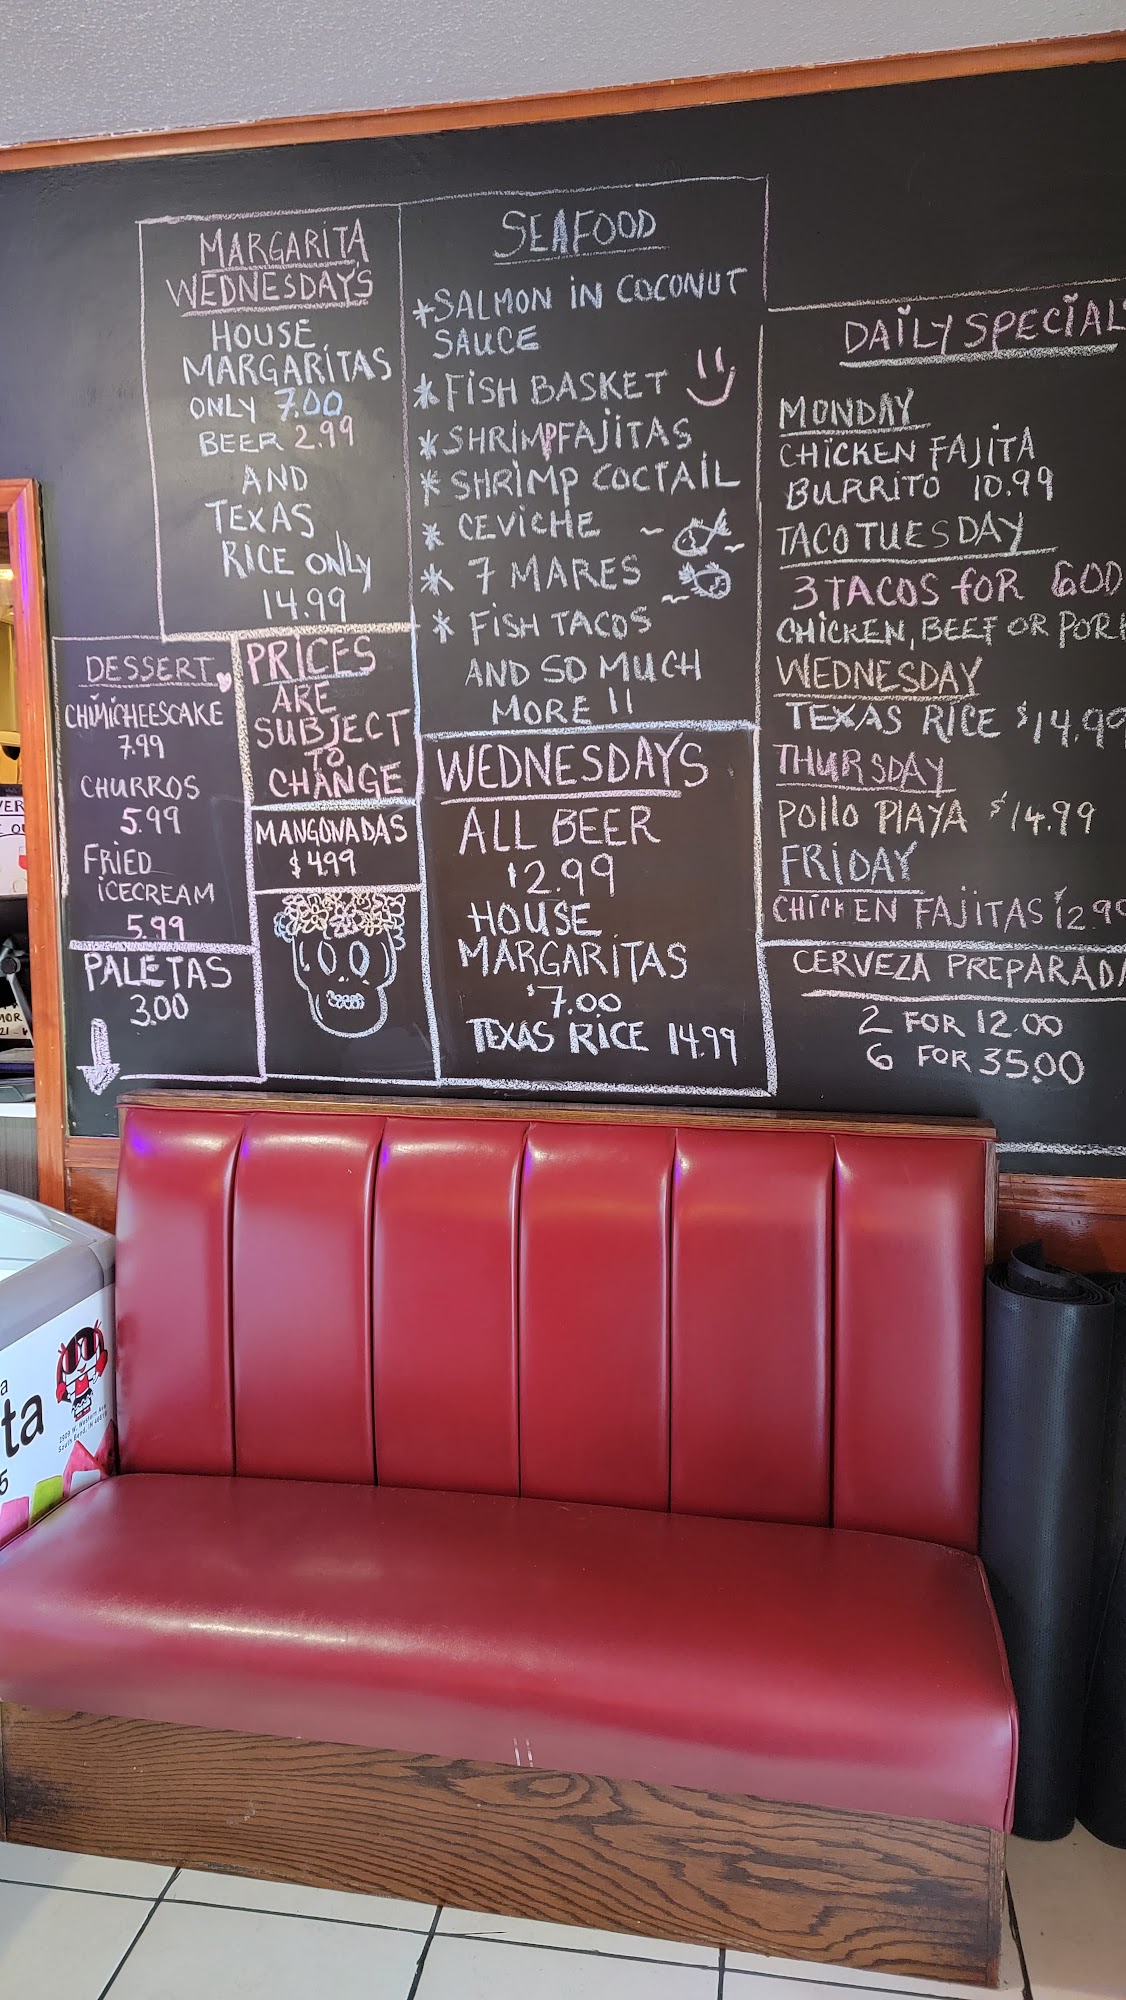 MARGARITA
WEDNESDAY'S
HOUSE
MARGARITAS
ONLY 7.00
BEER 2.99
AND
TEXAS
RICE ONLY
14.99
SEAFOOD
*SALMON IN COCONUT
SAUCE
*FISH BASKET
*SHRIMPFAJITAS
*SHRIMP COCTAIL
* CEVICHE
* 7 MARES
* FISH TACOS
AND SO MUCH
MORE !!
DAILY SPECIAL
MONDAY
CHICKEN FAJITA
BURRITO 10.99
TACO TUESDAY
3 TACOS FOR 6.00
CHICKEN, BEEF OR PORK
WEDNESDAY
TEXAS RICE $14.99
THURSDAY
POLLO PLAYA $14.99
FRIDAY
CHICKEN FAJITAS 12.99
CERVEZA PREPARADA
2 FOR 12.00
6 FOR 35.00
DESSERT
CHIMICHEESCAKE
7.99
CHURROS
5.99
FRIED
ICECREAM
5.99
PALETAS
3.00
PRICES
ARE
SUBJECT
TO
CHANGE
MANGONADAS
$4.99
WEDNESDAY'S
ALL BEER
$2.99
HOUSE
MARGARITAS
$7.00
TEXAS RICE 14.99
VER
a
ta
5
2909 W. Western Ave
South Bend, IN 46619